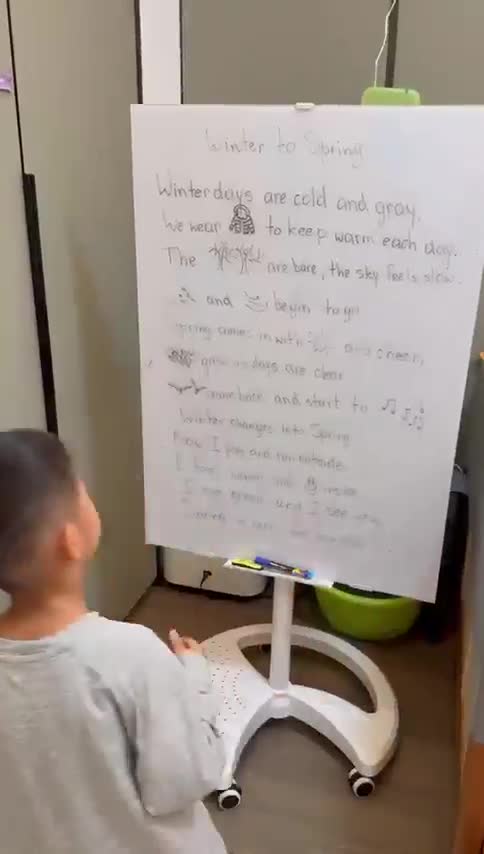 Winter to Spring
Winter days are cold and gray.
We wear to keep warm each day.
The are bare, the sky feels slow.
and begin to go
Spring comes in with and cheer,
grow as days are clear
come back and start to
Winter changes into Spring
Now I play and run outside
I feel
I see green and I see